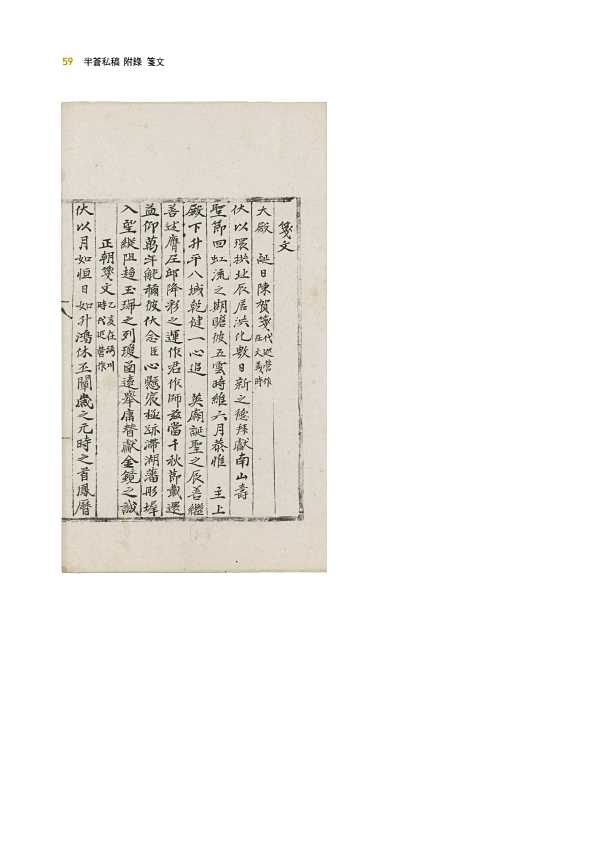 59 半蒼私稿 附錄 箋文
箋文
大殿 誕日陳賀箋代巡營作在文義時
伏以環拱北辰居洪化敷日新之德拜獻南山壽
聖節回虹流之期瞻彼五雲時維六月恭惟 主上
殿下升平八域乾健一心追 英廟誕聖之辰善繼
善述膺丘邱降彩之運作君作師玆當千秋節載還
益仰萬年能稱彼伏念臣心懸宸極跡滯湖藩彤墀
入望縱阻趨玉珮之列瓊函遠擧庸替獻金鏡之誠
正朝箋文乙亥在沔川時代巡營作
伏以月如恒日如升鴻休丕闡歲之元時之首鳳曆